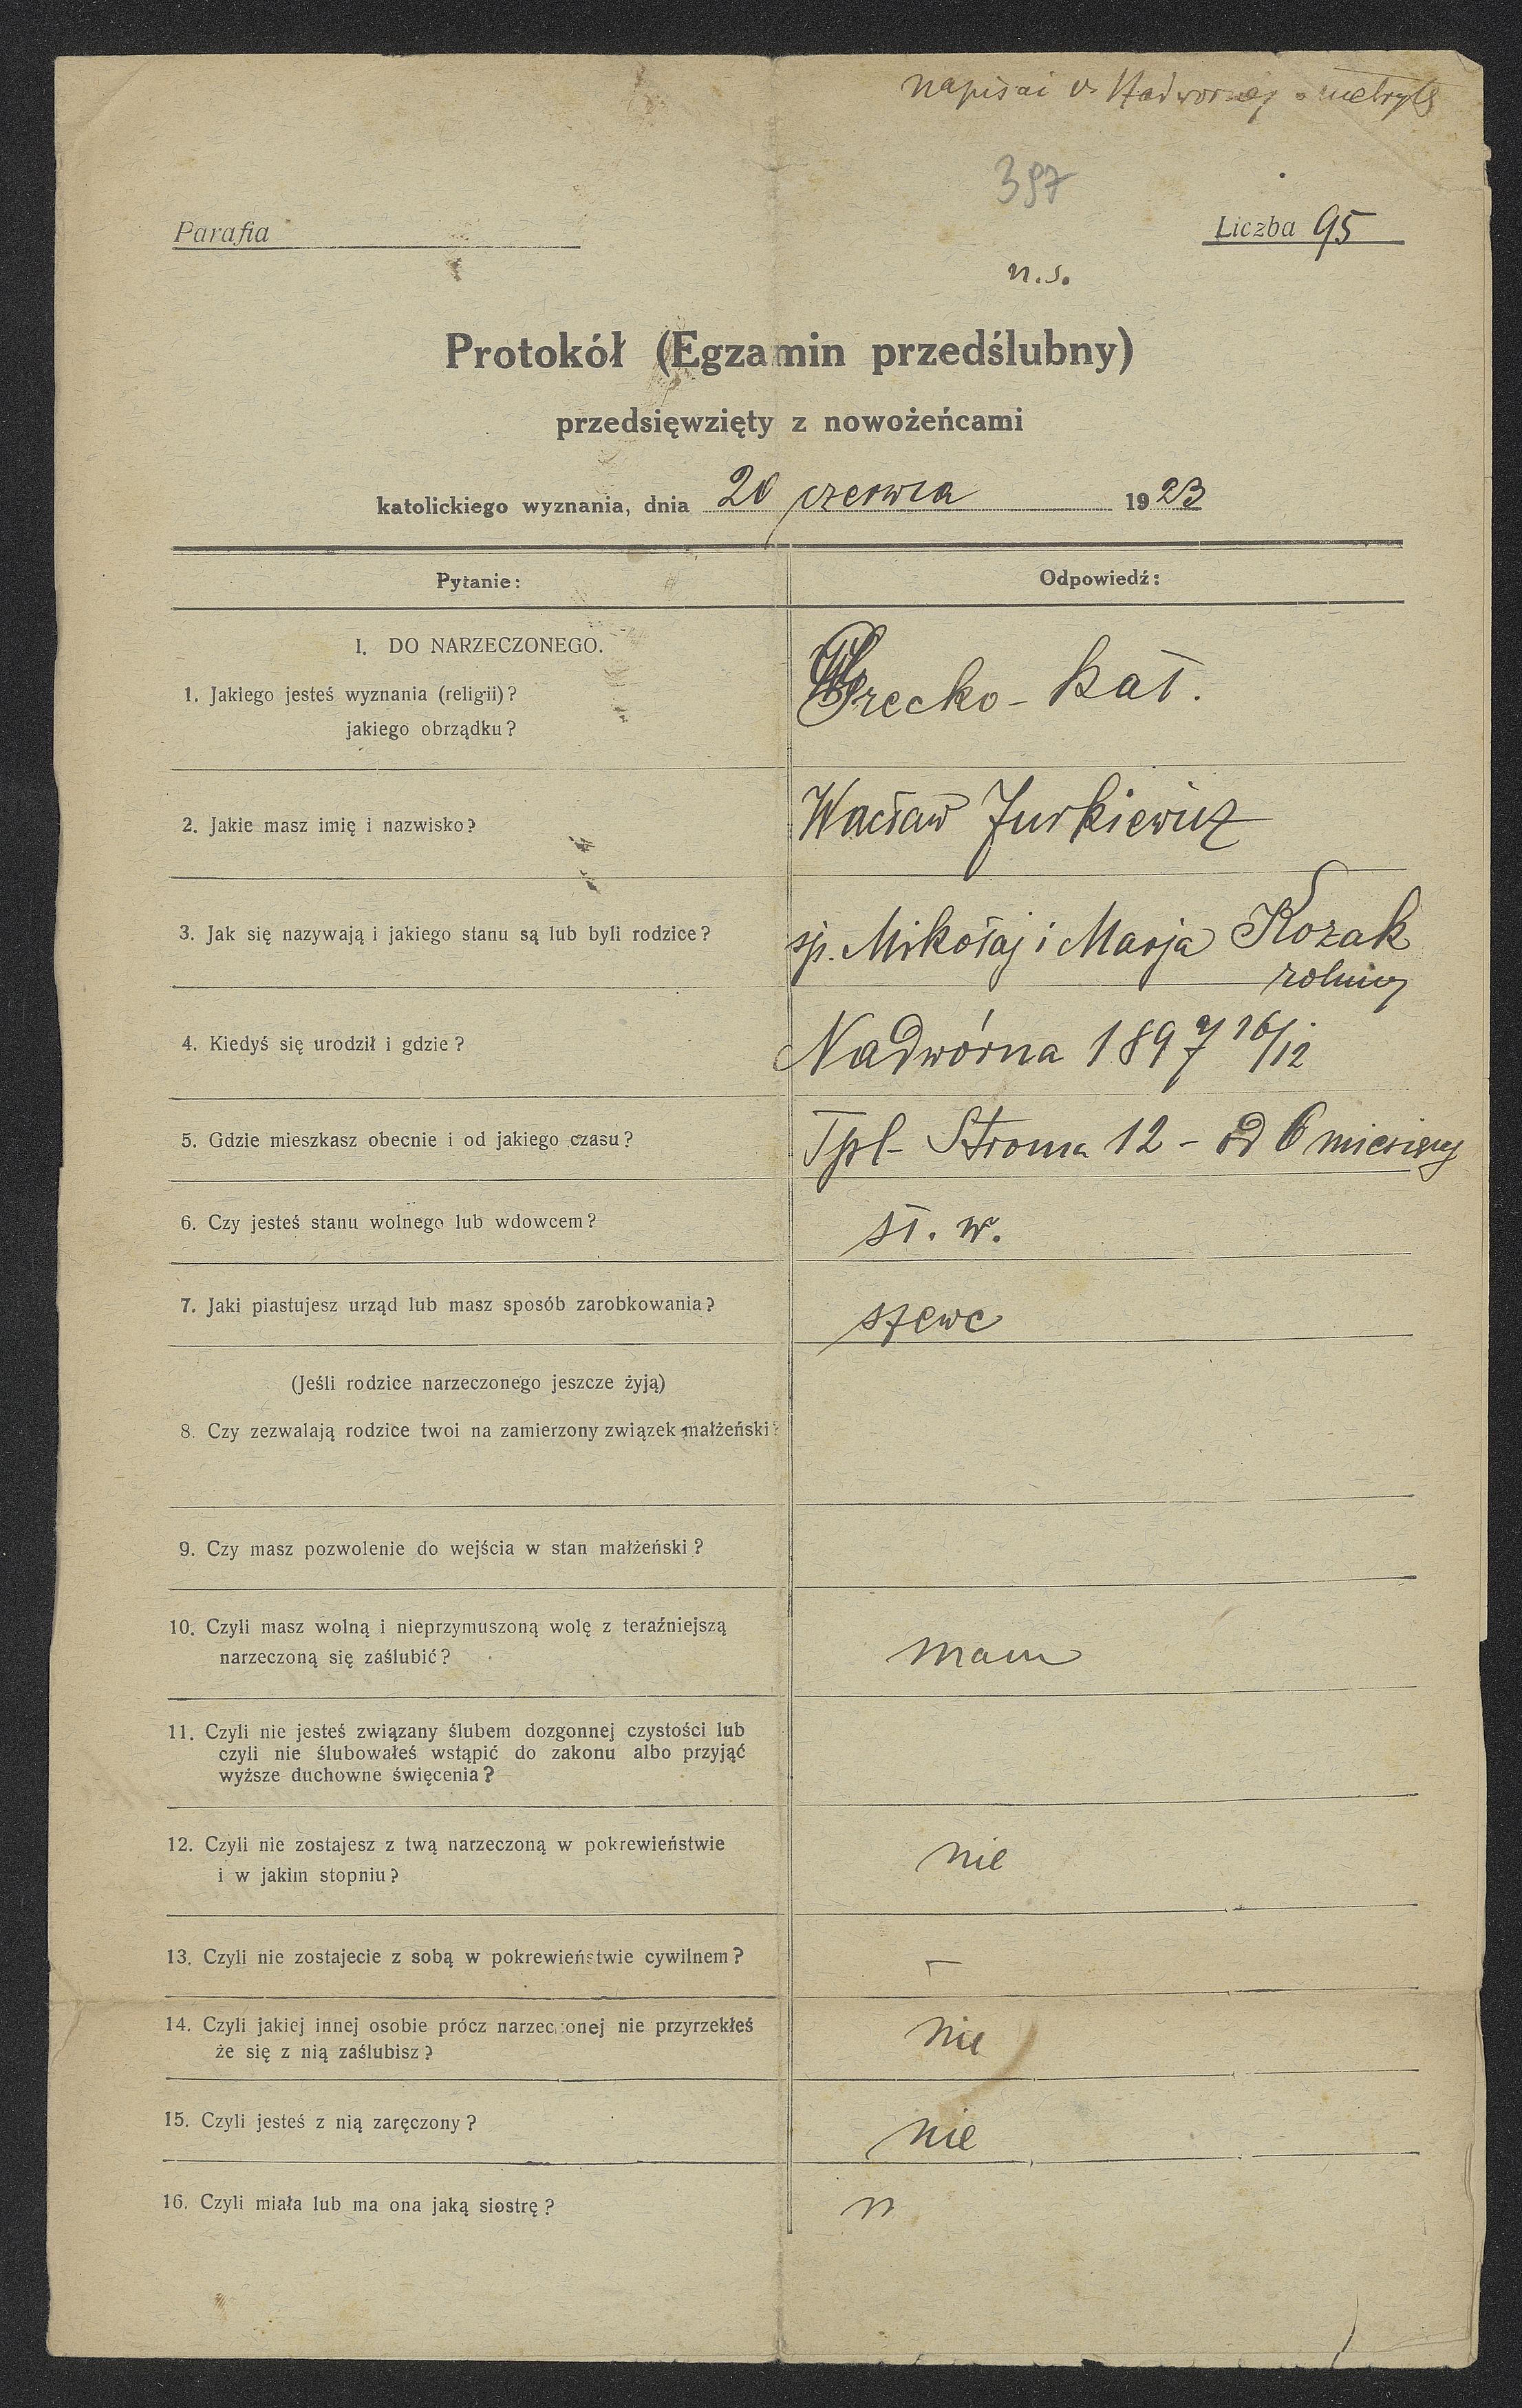 napisać do Nadwornej o metrykę
397
Parafia
Liczba 95
n.s.
Protokół (Egzamin przedślubny)
przedsięwzięty z nowożeńcami
katolickiego wyznania, dnia 20 czerwca 1923
Pytanie: Odpowiedź:
I. DO NARZECZONEGO.
1. Jakiego jesteś wyznania (religii)?
jakiego obrządku?
Grecko-kat.
2. Jakie masz imię i nazwisko? Wacław Jurkiewicz
3. Jak się nazywają i jakiego stanu są lub byli rodzice? śp. Mikołaj i Marja Kozak
rolnicy
4. Kiedyś się urodził i gdzie? Nadwórna 1897 16/12
5. Gdzie mieszkasz obecnie i od jakiego czasu? Tpl- Stroma 12 - od 6 miesięcy
6. Czy jesteś stanu wolnego lub wdowcem? st. w.
7. Jaki piastujesz urząd lub masz sposób zarobkowania? szewc
(Jeśli rodzice narzeczonego jeszcze żyją)
8. Czy zezwalają rodzice twoi na zamierzony związek małżeński?
9. Czy masz pozwolenie do wejścia w stan małżeński?
10. Czyli masz wolną i nieprzymuszoną wolę z teraźniejszą
narzeczoną się zaślubić? mam
11. Czyli nie jesteś związany ślubem dozgonnej czystości lub
czyli nie ślubowałeś wstąpić do zakonu albo przyjąć
wyższe duchowne święcenia?
12. Czyli nie zostajesz z twą narzeczoną w pokrewieństwie
i w jakim stopniu? nie
13. Czyli nie zostajecie z sobą w pokrewieństwie cywilnem? –
14. Czyli jakiej innej osobie prócz narzeczonej nie przyrzekłeś
że się z nią zaślubisz? nie
15. Czyli jesteś z nią zaręczony? nie
16. Czyli miała lub ma ona jaką siostrę? n